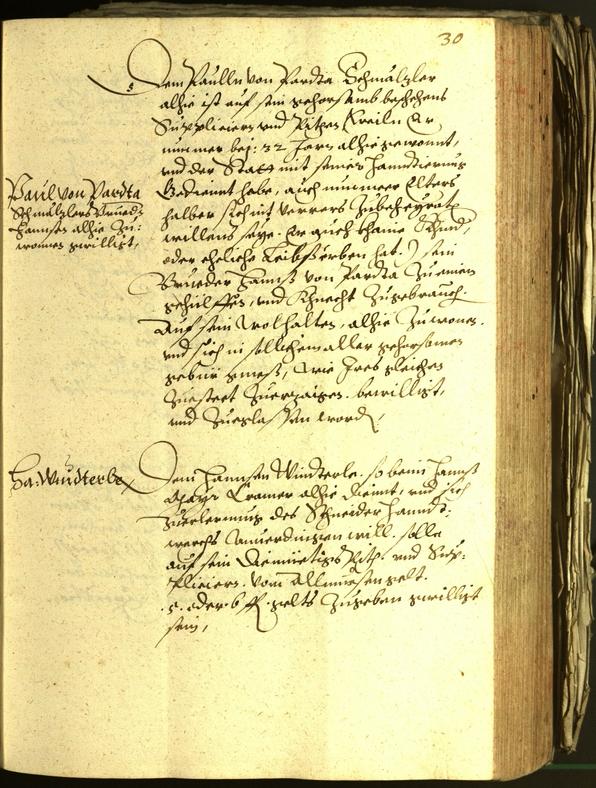 30
Dem Paulln von Pardta Schmalzler
alhie ist auf sein gehorsamb beschehens
Suppliciern vnd Pitten (weiln Er
nunmer bey: 32 Jarn alhie gewont,
vnd der Statt mit seiner Handtierung
gedient habe, auch nunmeer Elters
halber sich nit verrers zuuerheyraten
willens seye. Er auch khaine Khind,
oder eheliche Leibßerben hat.) sein
Brueder Hannß von Pardta zu einem
gehülffen, vnd Khnecht zugebrauch.
Auf sein wolhalten, alhie zu wonen.
vnd sich in sollichem aller gehorsamen
gebür gemeß, wie Ires gleichen
zuesteet zuerzaigen. bewilligt,
vnd zuegelassen word.
Paul von Pardta
Schmalzlers Brueder
Hannsen alhie zu
wonnen gwilligt,
Ha: Windterle
Dem Hannsen Windterle. so beim Hannß
Mayr Cramer alhie dient, vnd sich
zuerlernung des Schneider Handt-
werchs will. solle
auf sein diemietigs Pitt. vnd Sup-
pliciern. vom Allmuesen gelt.
.5. oder 6 fl. gelts zugeben gwilligt
sein,